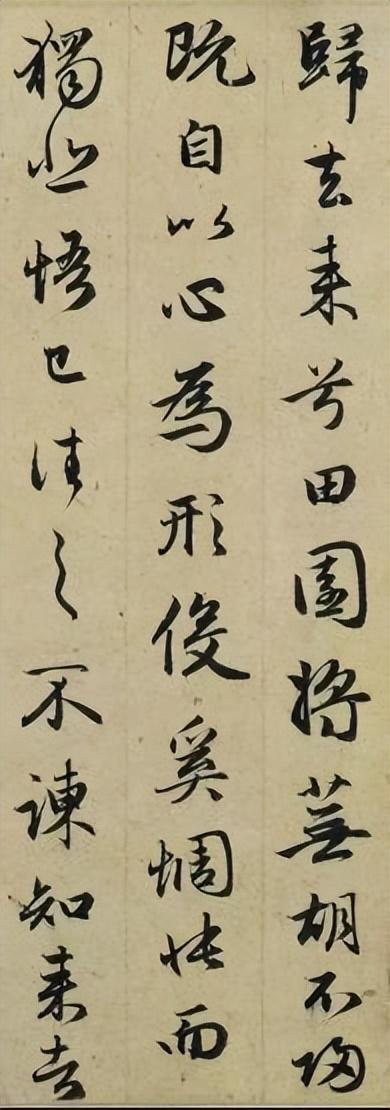 歸去来兮田園将蕪胡不歸
既自以心為形役奚惆悵而
獨悲悟已往之不諫知来者